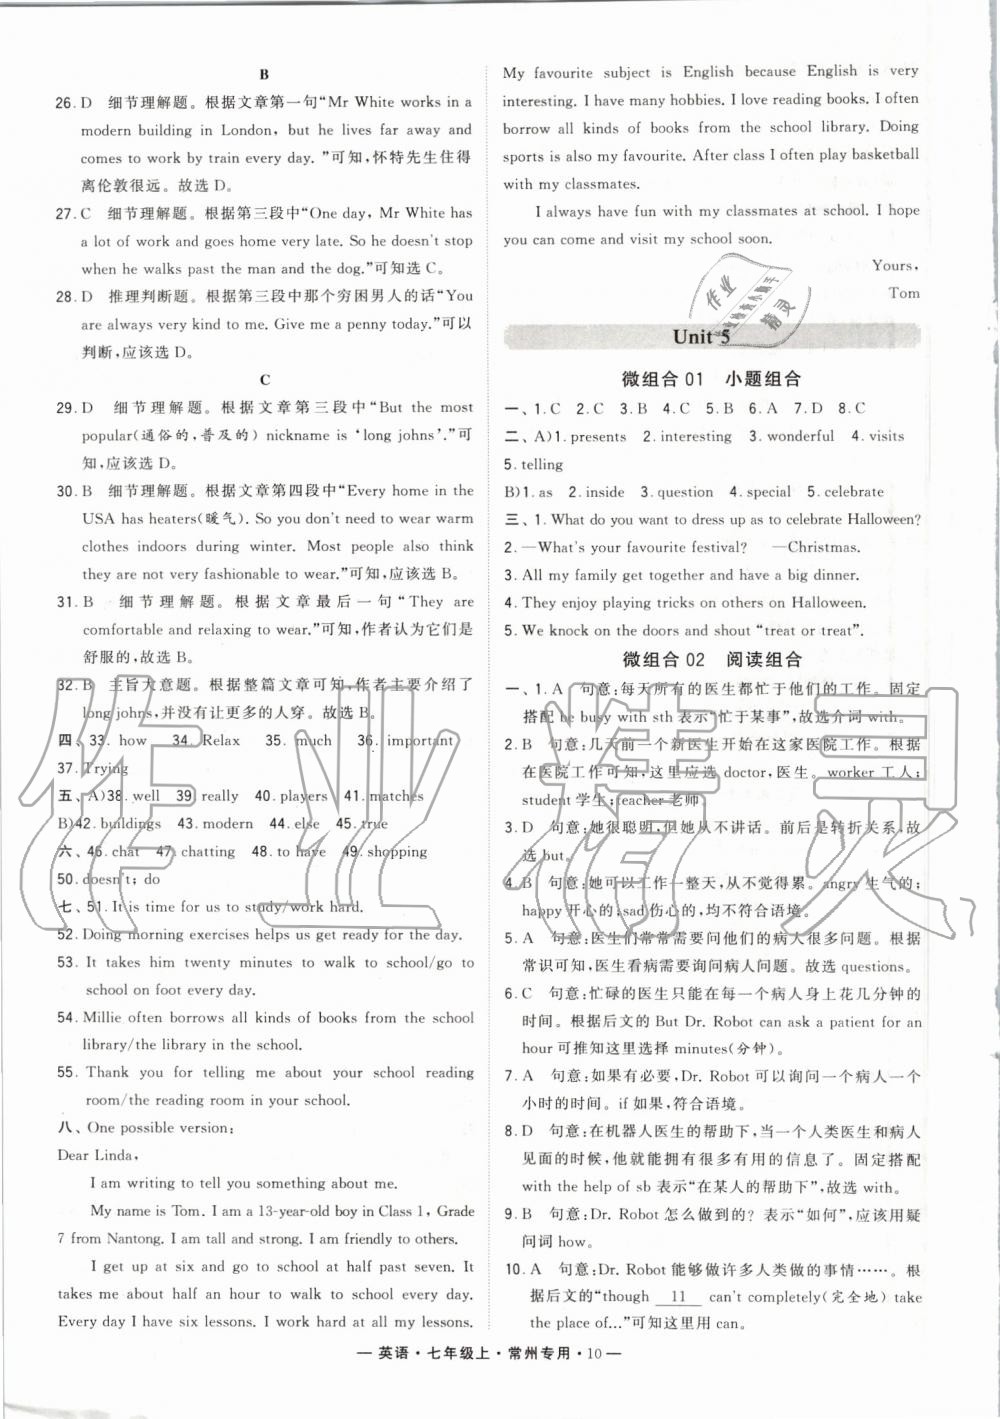 B
26. D 细节理解题。根据文章第一句“Mr White works in a
modern building in London, but he lives far away and
comes to work by train every day. ”可知,怀特先生住得
离伦敦很远。故选 D。
27. C 细节理解题。根据第三段中“One day, Mr White has
a lot of work and goes home very late. So he doesn't stop
when he walks past the man and the dog.”可知选 C。
28. D 推理判断题。根据第三段中那个穷困男人的话“You
are always very kind to me. Give me a penny today.”可以
判断,应该选 D。
C
29. D 细节理解题。根据文章第三段中“But the most
popular(通俗的,普及的) nickname is ‘long johns’.”可
知,应该选 D。
30. B 细节理解题。根据文章第四段中“Every home in the
USA has heaters(暖气). So you don't need to wear warm
clothes indoors during winter. Most people also think
they are not very fashionable to wear.”可知,应该选 B。
31. B 细节理解题。根据文章最后一句“They are
comfortable and relaxing to wear.”可知,作者认为它们是
舒服的,故选 B。
32. B 主旨大意题。根据整篇文章可知,作者主要介绍了
long johns,并没有让更多的人穿。故选 B。
四、33. how 34. Relax 35. much 36. important
37. Trying
五、A)38. well 39. really 40. players 41. matches
B)42. buildings 43. modern 44. else 45. true
六、46. chat 47. chatting 48. to have 49. shopping
50. doesn't; do
七、51. It is time for us to study/work hard.
52. Doing morning exercises helps us get ready for the day.
53. It takes him twenty minutes to walk to school/go to
school on foot every day.
54. Millie often borrows all kinds of books from the school
library/the library in the school.
55. Thank you for telling me about your school reading
room/the reading room in your school.
八、One possible version:
Dear Linda,
I am writing to tell you something about me.
My name is Tom. I am a 13-year-old boy in Class 1, Grade
7 from Nantong. I am tall and strong. I am friendly to others.
I get up at six and go to school at half past seven. It
takes me about half an hour to walk to school every day.
Every day I have six lessons. I work hard at all my lessons.
My favourite subject is English because English is very
interesting. I have many hobbies. I love reading books. I often
borrow all kinds of books from the school library. Doing
sports is also my favourite. After class I often play basketball
with my classmates.
I always have fun with my classmates at school. I hope
you can come and visit my school soon.
Yours,
Tom
Unit 5
微组合 01 小题组合
一、1. C 2. C 3. B 4. C 5. B 6. A 7. D 8. C
二、A)1. presents 2. interesting 3. wonderful 4. visits
5. telling
B)1. as 2. inside 3. question 4. special 5. celebrate
三、1. What do you want to dress up as to celebrate Halloween?
2. —What's your favourite festival? —Christmas.
3. All my family get together and have a big dinner.
4. They enjoy playing tricks on others on Halloween.
5. We knock on the doors and shout “treat or treat”.
微组合 02 阅读组合
一、1. A 句意:每天所有的医生都忙于他们的工作。固定
搭配 be busy with sth 表示“忙于某事”,故选介词 with。
2. B 句意:几天前一个新医生开始在这家医院工作。根据
在医院工作可知,这里应选 doctor,医生。worker 工人;
student 学生;teacher 老师。
3. D 句意:她很聪明,但她从不讲话。前后是转折关系,故
选 but。
4. B 句意:她可以工作一整天,从不觉得累。angry 生气的;
happy 开心的;sad 伤心的,均不符合语境。
5. A 句意:医生们常常需要问他们的病人很多问题。根据
常识可知,医生看病需要询问病人问题。故选 questions。
6. C 句意:忙碌的医生只能在每一个病人身上花几分钟的
时间。根据后文的 But Dr. Robot can ask a patient for an
hour 可推知这里选择 minutes(分钟)。
7. A 句意:如果有必要,Dr. Robot 可以询问一个病人一个
小时的时间。if 如果,符合语境。
8. D 句意:在机器人医生的帮助下,当一个人类医生和病人
见面的时候,他就能拥有很多有用的信息了。固定搭配
with the help of sb 表示“在某人的帮助下”,故选 with。
9. B 句意:Dr. Robot 怎么做到的? 表示“如何”,应该用疑
问词 how。
10. A 句意:Dr. Robot 能够做许多人类做的事情……。根
据后文的“though 11 can't completely(完全地) take
the place of...”可知这里用 can。
— 英语·七年级上·常州专用·10 —
作业精灵
作业
精灵